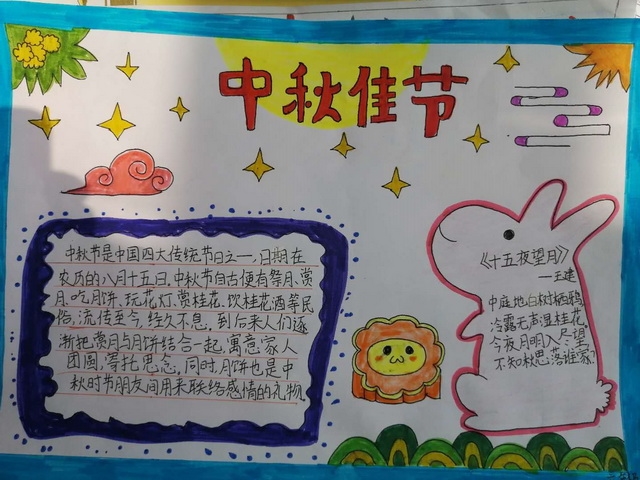 中秋佳节
中秋节是中国四大传统节日之一,日期在
农历的八月十五日.中秋节自古便有祭月、赏
月、吃月饼、玩花灯、赏桂花、饮桂花酒等民
俗,流传至今,经久不息,到后来人们逐
渐把赏月与月饼结合一起,寓意家人
团圆,寄托思念,同时,月饼也是中
秋时节朋友间用来联络感情的礼物
《十五夜望月》
—王建
中庭地白树栖鸦
冷露无声湿桂花
今夜月明人尽望
不知秋思落谁家?